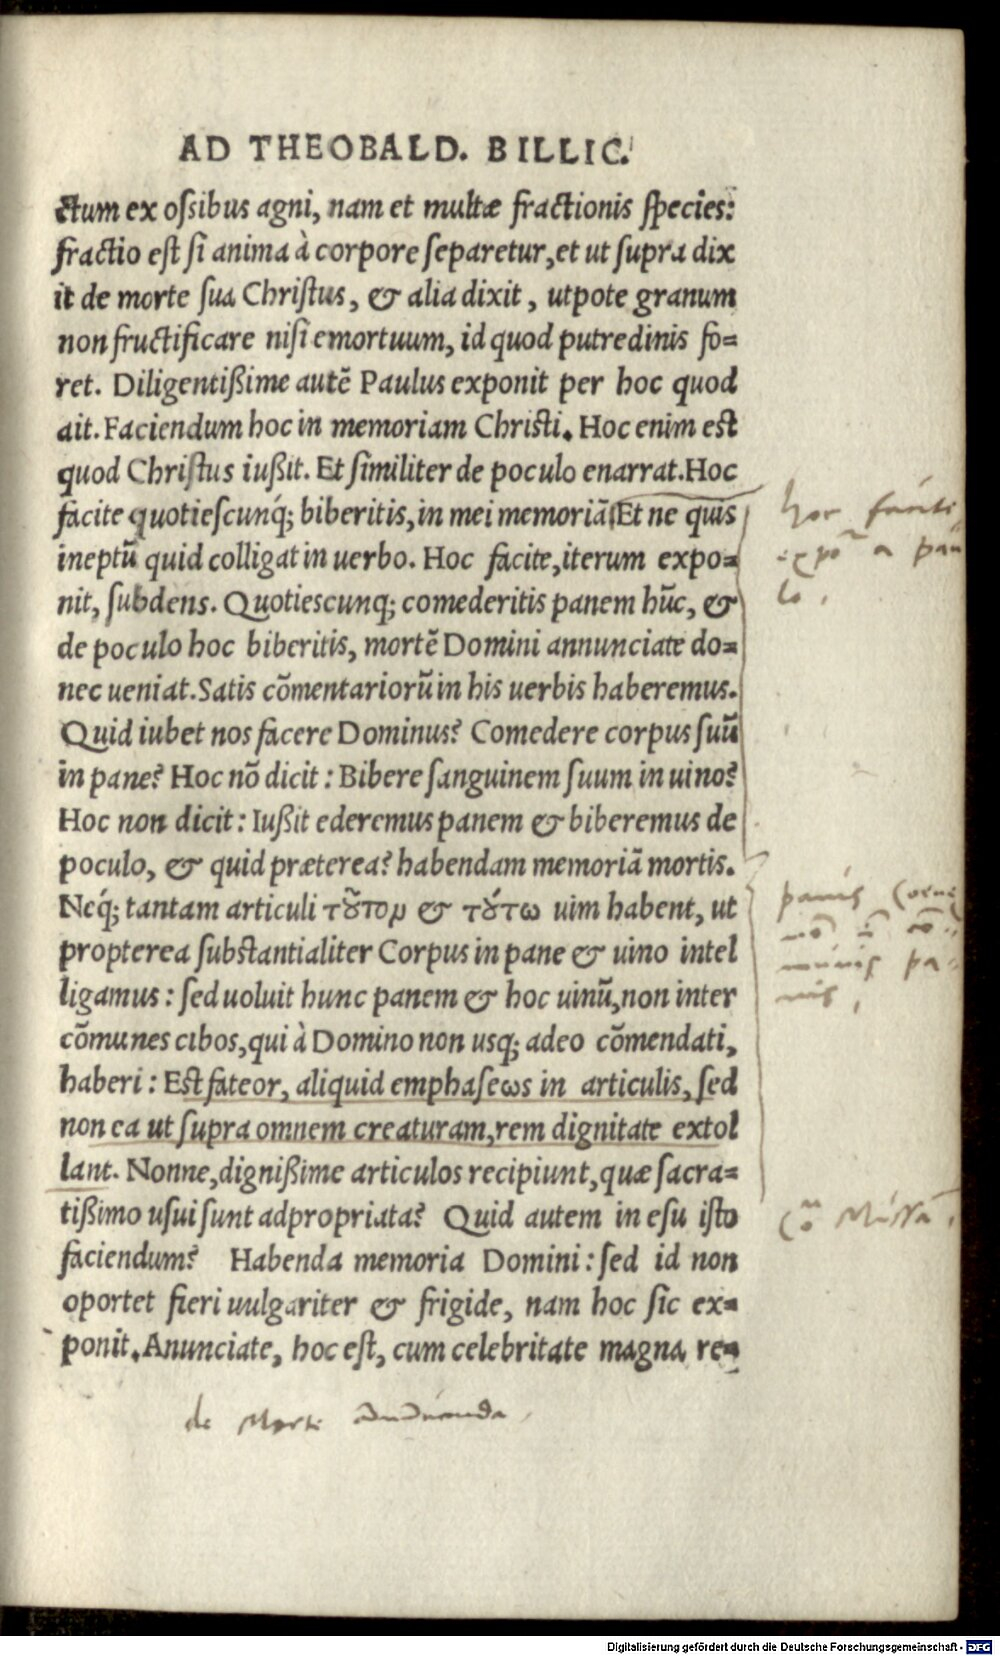 AD THEOBALD. BILLIC.
ctum ex ossibus agni, nam et multæ fractionis species:
fractio est si anima à corpore separetur, et ut supra dix
it de morte sua Christus, & alia dixit, utpote granum
non fructificare nisi emortuum, id quod putredinis fo=
ret. Diligentißime autẽ Paulus exponit per hoc quod
ait. Faciendum hoc in memoriam Christi. Hoc enim est
quod Christus iußit. Et similiter de poculo enarrat. Hoc
facite quotiescunq́; biberitis, in mei memoriã. Et ne quis
ineptũ quid colligat in uerbo. Hoc facite, iterum expo=
nit, subdens. Quotiescunq; comederitis panem hũc, &
de poculo hoc biberitis, mortẽ Domini annunciate do=
nec ueniat. Satis cõmentariorũ in his uerbis haberemus.
Quid iubet nos facere Dominus? Comedere corpus suũ
in pane? Hoc nõ dicit: Bibere sanguinem suum in uino?
Hoc non dicit: Iußit ederemus panem & biberemus de
poculo, & quid præterea? habendam memoriã mortis.
Neq́; tantam articuli τοῦτον & τούτω uim habent, ut
propterea substantialiter Corpus in pane & uino intel
ligamus: sed uoluit hunc panem & hoc uinũ, non inter
cõmunes cibos, qui à Domino non usq; adeo cõmendati,
haberi: Est fateor, aliquid emphaseωs in articulis, sed
non ea ut supra omnem creaturam, rem dignitate extol
lant. Nonne, dignißime articulos recipiunt, quæ sacra=
tißimo usui sunt adpropriata? Quid autem in esu isto
faciendum? Habenda memoria Domini: sed id non
oportet fieri uulgariter & frigide, nam hoc sic ex=
ponit. Anunciate, hoc est, cum celebritate magna re=
hoc facite
expõ a pau
lo.
panis coenę
nõ ẽ cõ
munis pa-
nis,
cõ Missã
de Morte
Digitalisierung gefördert durch die Deutsche Forschungsgemeinschaft - DFG